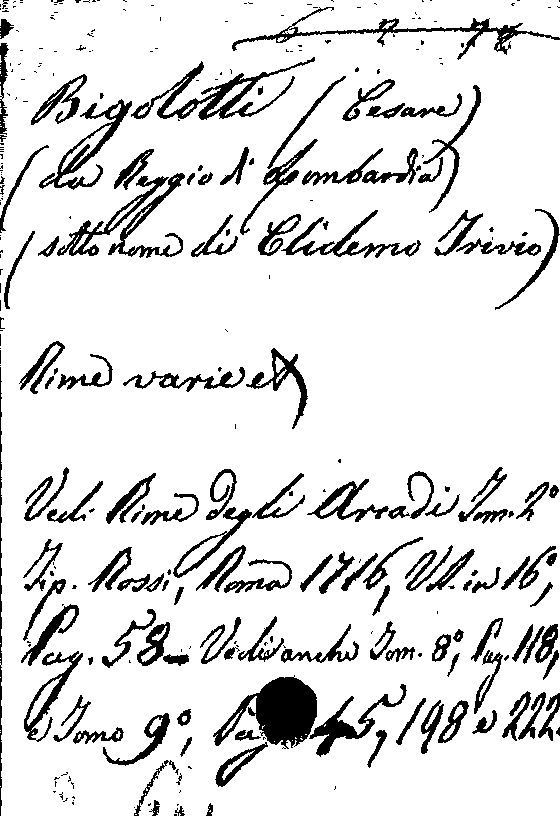 6. 7. 78
Bigolotti (Cesare)
(da Reggio di Lombardia)
(sotto nome di Clidemo Trivio)
Rime varie
Vedi Rime degli Arcadi Tom. 2º
Tip. Rossi, Roma 1716, Vol. in 16º,
Pag. 58 – Vedi anche Tom. 8º, Pag. 118,
e Tomo 9º, 45, 198 e 222